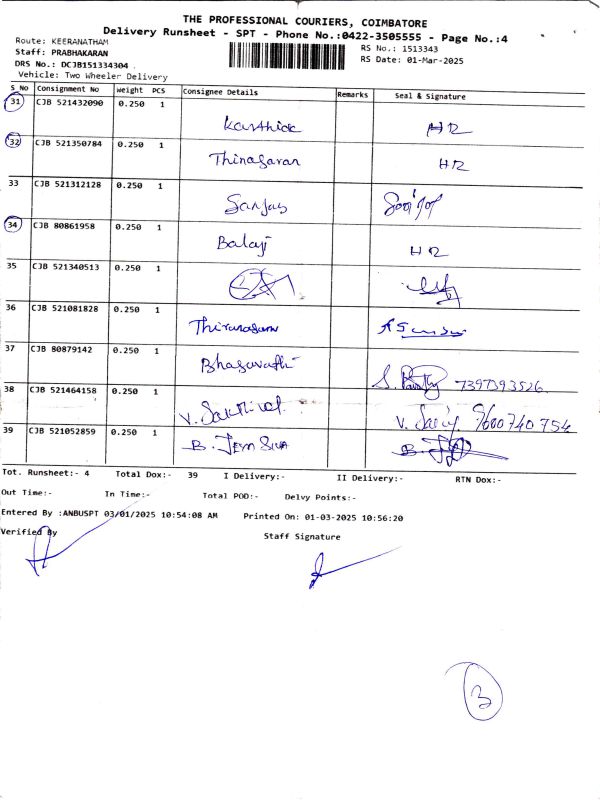 THE PROFESSIONAL COURIERS, COIMBATORE
Delivery Runsheet - SPT - Phone No.:0422-3505555 - Page No.:4
Route: KEERANATHAM
RS No.: 1513343
Staff: PRABHAKARAN
RS Date: 01-Mar-2025
DRS No.: DCJB151334304
Vehicle: Two Wheeler Delivery
S No Consignment No Weight PCS Consignee Details Remarks Seal & Signature
31 CJB 521432090 0.250 1
Karthick HR
32 CJB 521350784 0.250 1
Thinagaran HR
33 CJB 521312128 0.250 1
Sanjay
34 CJB 80861958 0.250 1
Balaji HR
35 CJB 521340513 0.250 1
36 CJB 521081828 0.250 1
37 CJB 80879142 0.250 1
Bhagavathi
7397393526
38 CJB 521464158 0.250 1
V. Sakthivel 9600740754
39 CJB 521052859 0.250 1
B. JEMSIVA
Tot. Runsheet:- 4 Total Dox:- 39 I Delivery:- II Delivery:- RTN Dox:-
Out Time:- In Time:- Total POD:- Delvy Points:-
Entered By :ANBUSPT 03/01/2025 10:54:08 AM Printed On: 01-03-2025 10:56:20
Verified By Staff Signature
3